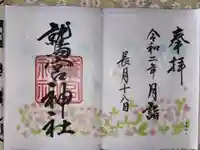 奉拝
令和二年 月詣
長月十八日
鷲宮神社